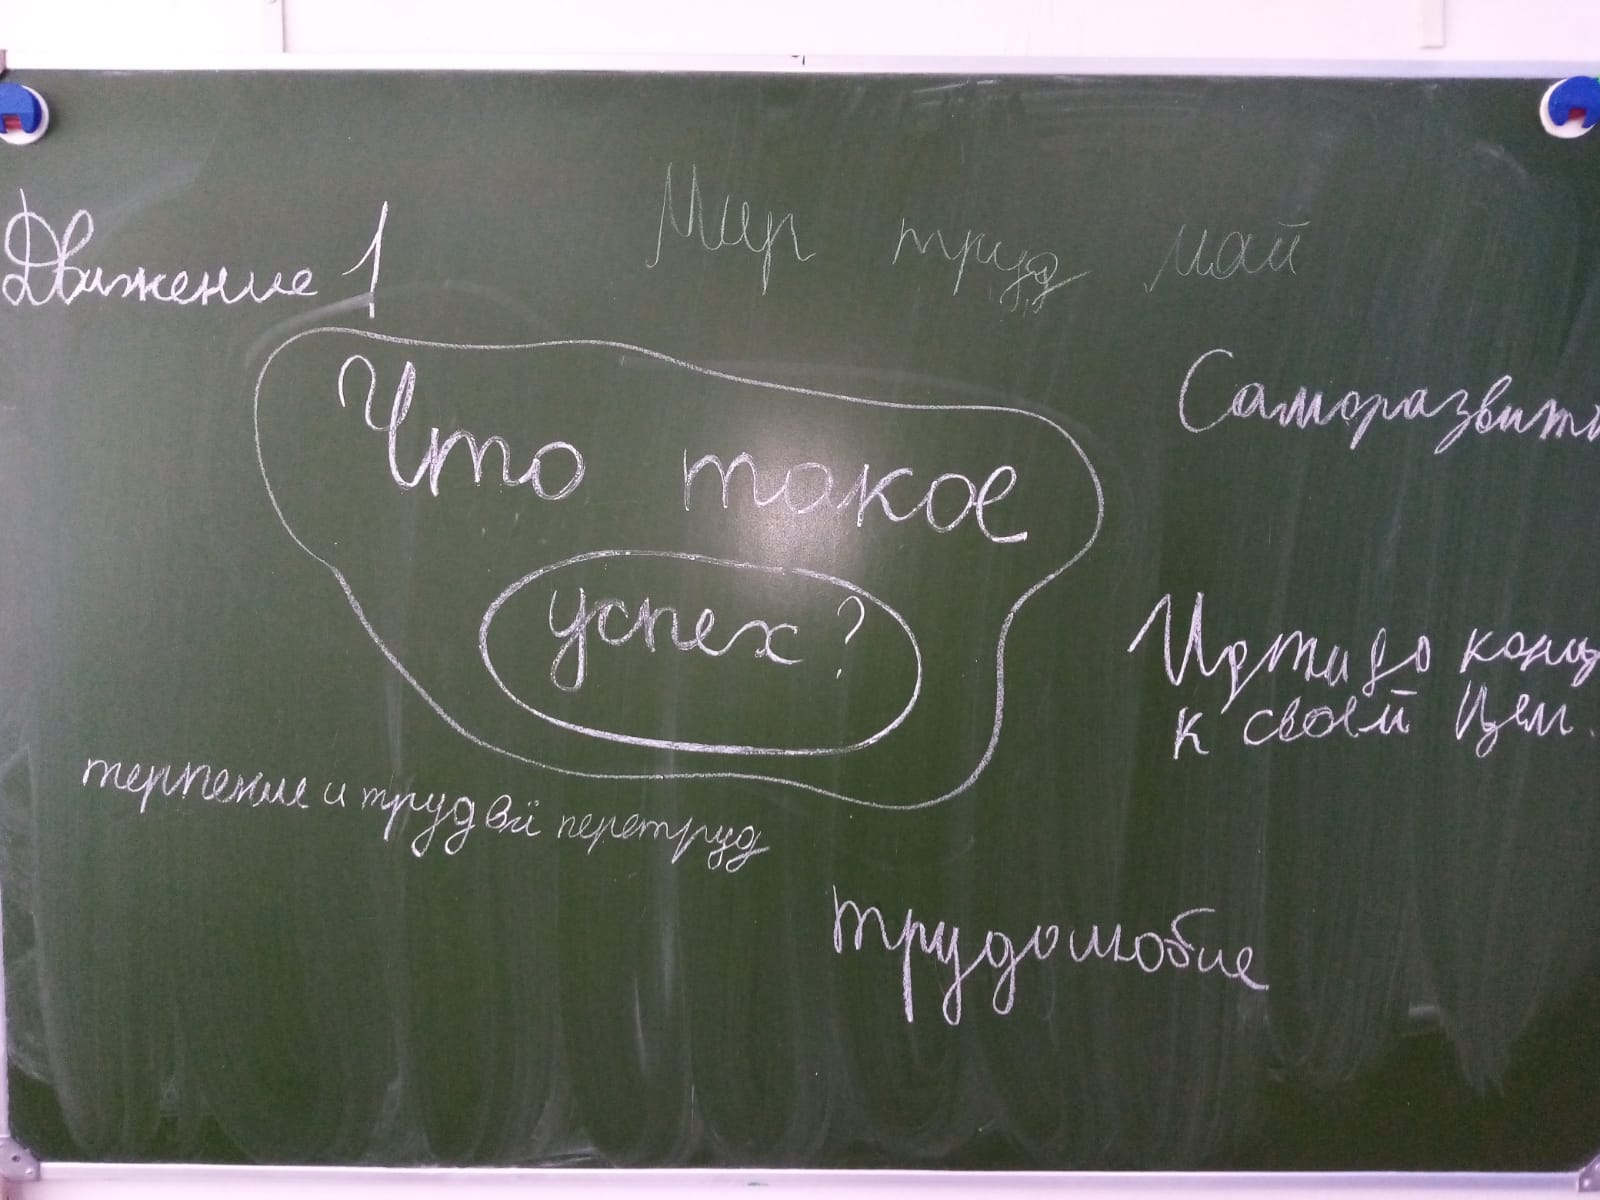 Мир труд май
Движение 1
Саморазвити
Что такое
успех?
Идти до конц
к своей цели.
терпение и труд всё перетруд
трудолюбие